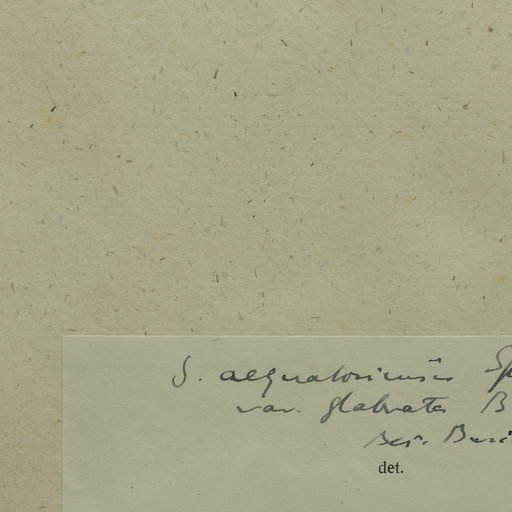 S. aequatoriensis Sp
var. glabrata B
det.